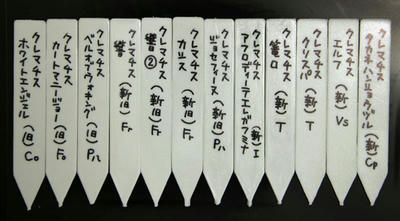 クレマチス
タカネハンショウヅル (新) Cp
クレマチス
エルフ (新) Vs
クレマチス
クリスパ (新) T
クレマチス
篭口 (新) T
クレマチス
アフロディーテエレガフミナ (新) I
クレマチス
ジョセフィーヌ (新旧) Pハ
クレマチス
カシス (新旧) Fr
クレマチス
響② (新旧) Fr
クレマチス
響 (新旧) Fr
クレマチス
ベルオブウォキング (旧) Pハ
クレマチス
カートマニージョー (旧) Fo
クレマチス
ホワイトエンジェル (旧) Co